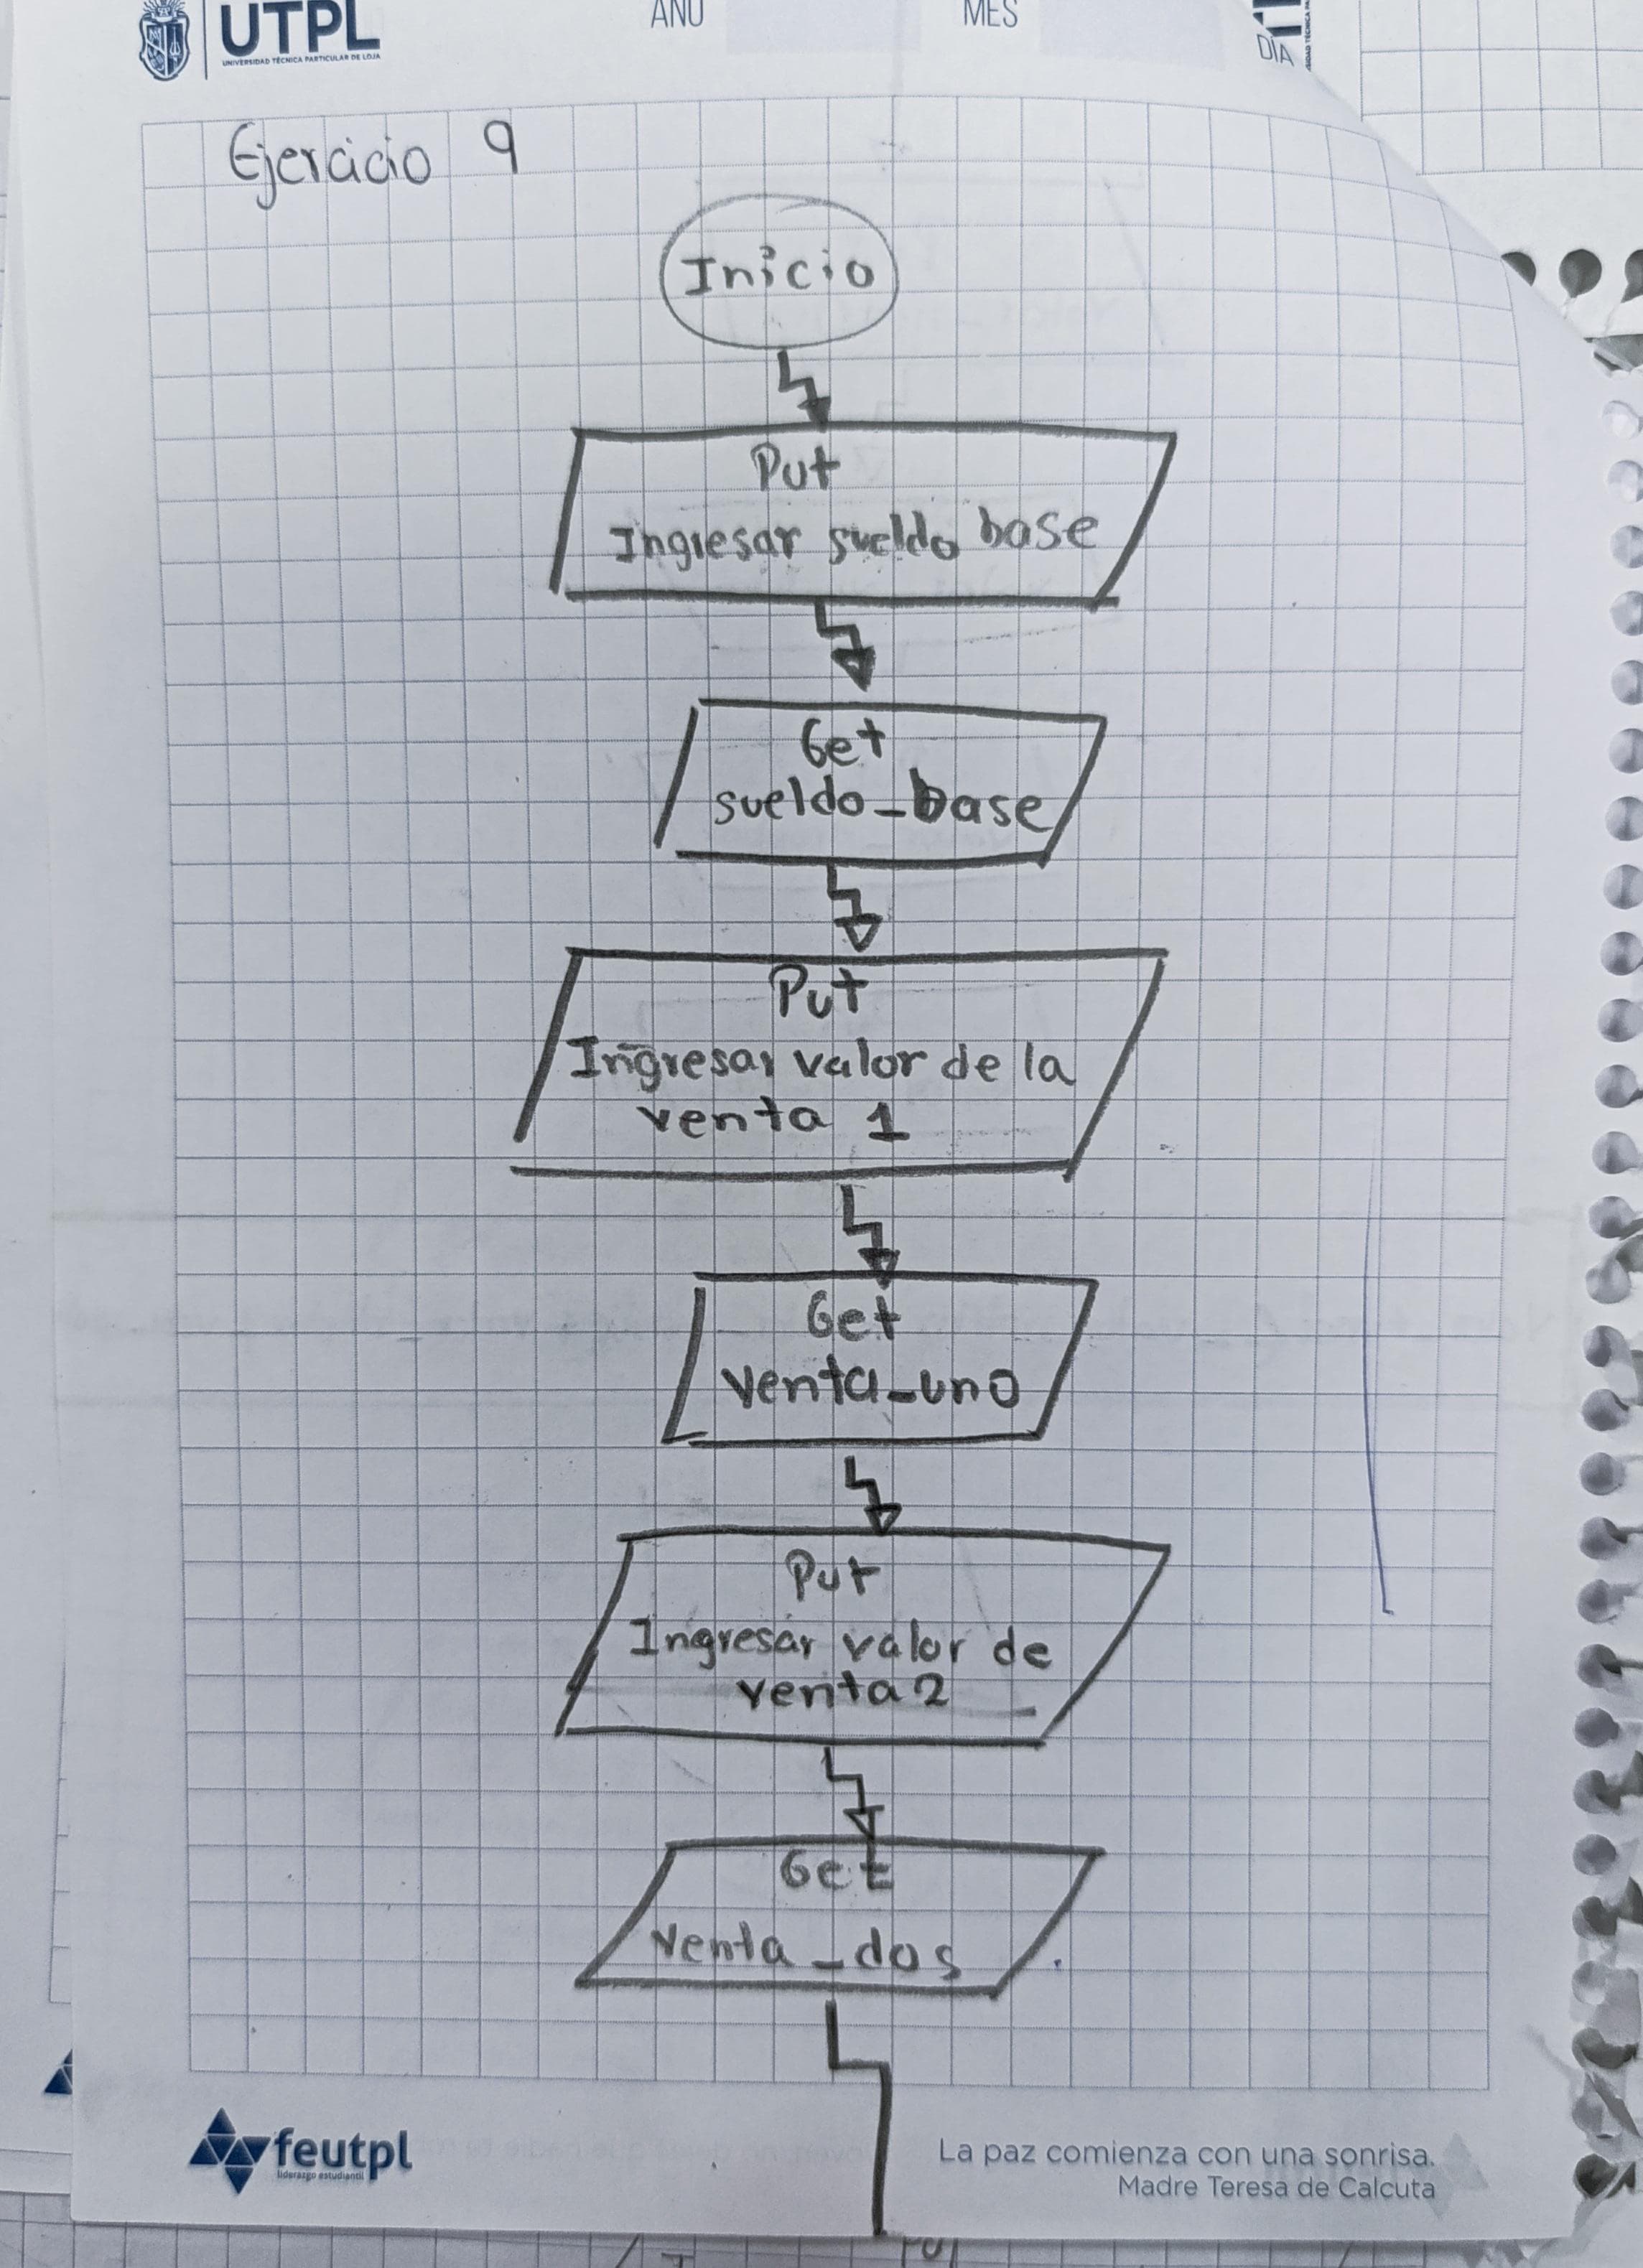 UTPL
UNIVERSIDAD TÉCNICA PARTICULAR DE LOJA
AÑO
MES
DÍA
Ejercicio 9
Inicio
Put
Ingresar sueldo base
Get
sueldo_base
Put
Ingresar valor de la
venta 1
Get
Venta_uno
Put
Ingresar valor de
venta 2
Get
venta_dos
feutpl
liderazgo estudiantil
La paz comienza con una sonrisa.
Madre Teresa de Calcuta